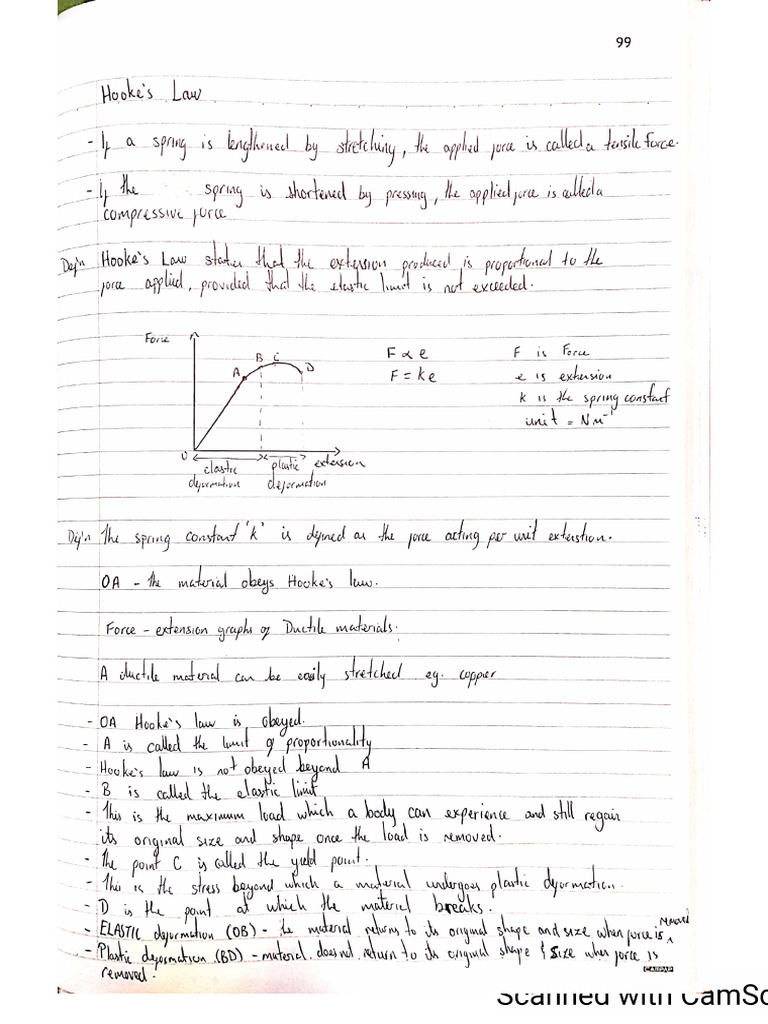 99
Hooke's Law
- If a spring is lengthened by stretching, the applied force is called a tensile force.
- If the spring is shortened by pressing, the applied force is called a
compressive force
Def'n Hooke's Law states that the extension produced is proportional to the
force applied, provided that the elastic limit is not exceeded.
Force
A B C D
F ∝ e
F = ke
F is Force
e is extension
k is the spring constant
unit = Nm⁻¹
O
elastic
deformation
plastic
deformation
extension
Def'n The spring constant 'k' is defined as the force acting per unit extension.
OA - the material obeys Hooke's law.
Force - extension graphs of Ductile materials.
A ductile material can be easily stretched eg. copper
- OA Hooke's law is obeyed.
- A is called the limit of proportionality
- Hooke's law is not obeyed beyond A
- B is called the elastic limit
- This is the maximum load which a body can experience and still regain
its original size and shape once the load is removed.
- The point C is called the yield point.
- This is the stress beyond which a material undergoes plastic deformation.
- D is the point at which the material breaks.
- ELASTIC deformation (OB) - the material returns to its original shape and size when force is removed
- Plastic deformation (BD) - material does not return to its original shape & size when force is
removed.
CARPAP
Scanned with CamSc